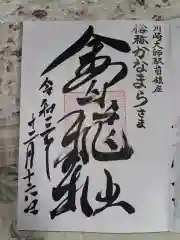 川崎大師駅前鎮座
俗称かなまらさま
金山神社
令和三年
十二月十六日